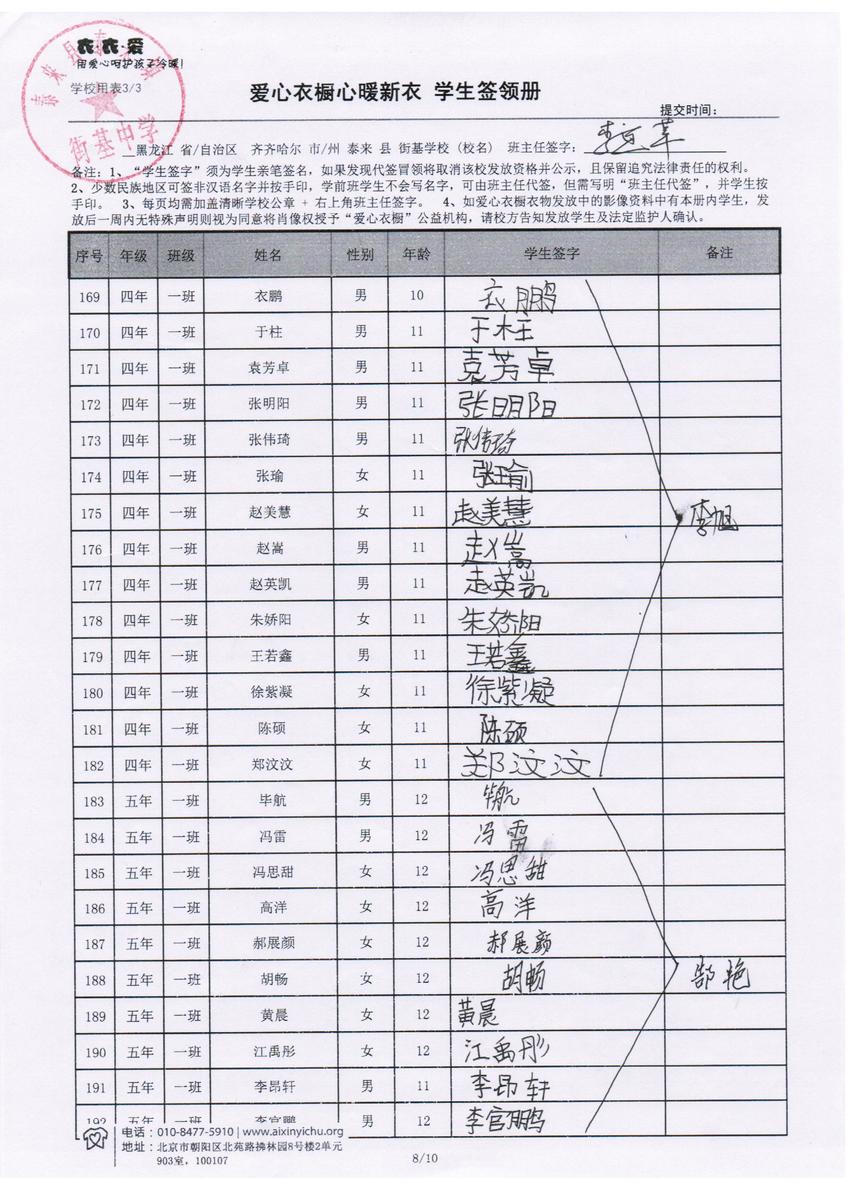 衣·衣·爱
用爱心呵护孩子冷暖!
学校用表3/3
街基中学
爱心衣橱心暖新衣 学生签领册
提交时间:
黑龙江 省/自治区 齐齐哈尔 市/州 泰来 县 街基学校(校名) 班主任签字:
备注:1、“学生签字”须为学生亲笔签名,如果发现代签冒领将取消该校发放资格并公示,且保留追究法律责任的权利。
2、少数民族地区可签非汉语名字并按手印,学前班学生不会写名字,可由班主任代签,但需写明“班主任代签”,并学生按
手印。 3、每页均需加盖清晰学校公章 + 右上角班主任签字。 4、如爱心衣橱衣物发放中的影像资料中有本册内学生,发
放后一周内无特殊声明则视为同意将肖像权授予“爱心衣橱”公益机构,请校方告知发放学生及法定监护人确认。
序号 年级 班级 姓名 性别 年龄 学生签字 备注
169 四年 一班 衣鹏 男 10 衣鹏
170 四年 一班 于柱 男 11 于柱
171 四年 一班 袁芳卓 男 11 袁芳卓
172 四年 一班 张明阳 男 11 张明阳
173 四年 一班 张伟琦 男 11 张伟琦
174 四年 一班 张瑜 女 11 张瑜
175 四年 一班 赵美慧 女 11 赵美慧 李旭
176 四年 一班 赵嵩 男 11 赵嵩
177 四年 一班 赵英凯 男 11 赵英凯
178 四年 一班 朱娇阳 女 11 朱娇阳
179 四年 一班 王若鑫 男 11 王若鑫
180 四年 一班 徐紫凝 女 11 徐紫凝
181 四年 一班 陈硕 女 11 陈硕
182 四年 一班 郑汶汶 女 11 郑汶汶
183 五年 一班 毕航 男 12 毕航
184 五年 一班 冯雷 男 12 冯雷
185 五年 一班 冯思甜 女 12 冯思甜
186 五年 一班 高洋 女 12 高洋
187 五年 一班 郝展颜 女 12 郝展颜
188 五年 一班 胡畅 女 12 胡畅 郜艳
189 五年 一班 黄晨 女 12 黄晨
190 五年 一班 江禹彤 女 12 江禹彤
191 五年 一班 李昂轩 男 11 李昂轩
192 五年 一班 李官鹏 男 12 李官鹏
电话:010-8477-5910 | www.aixinyichu.org
地址:北京市朝阳区北苑路拂林园8号楼2单元
903室,100107
8/10